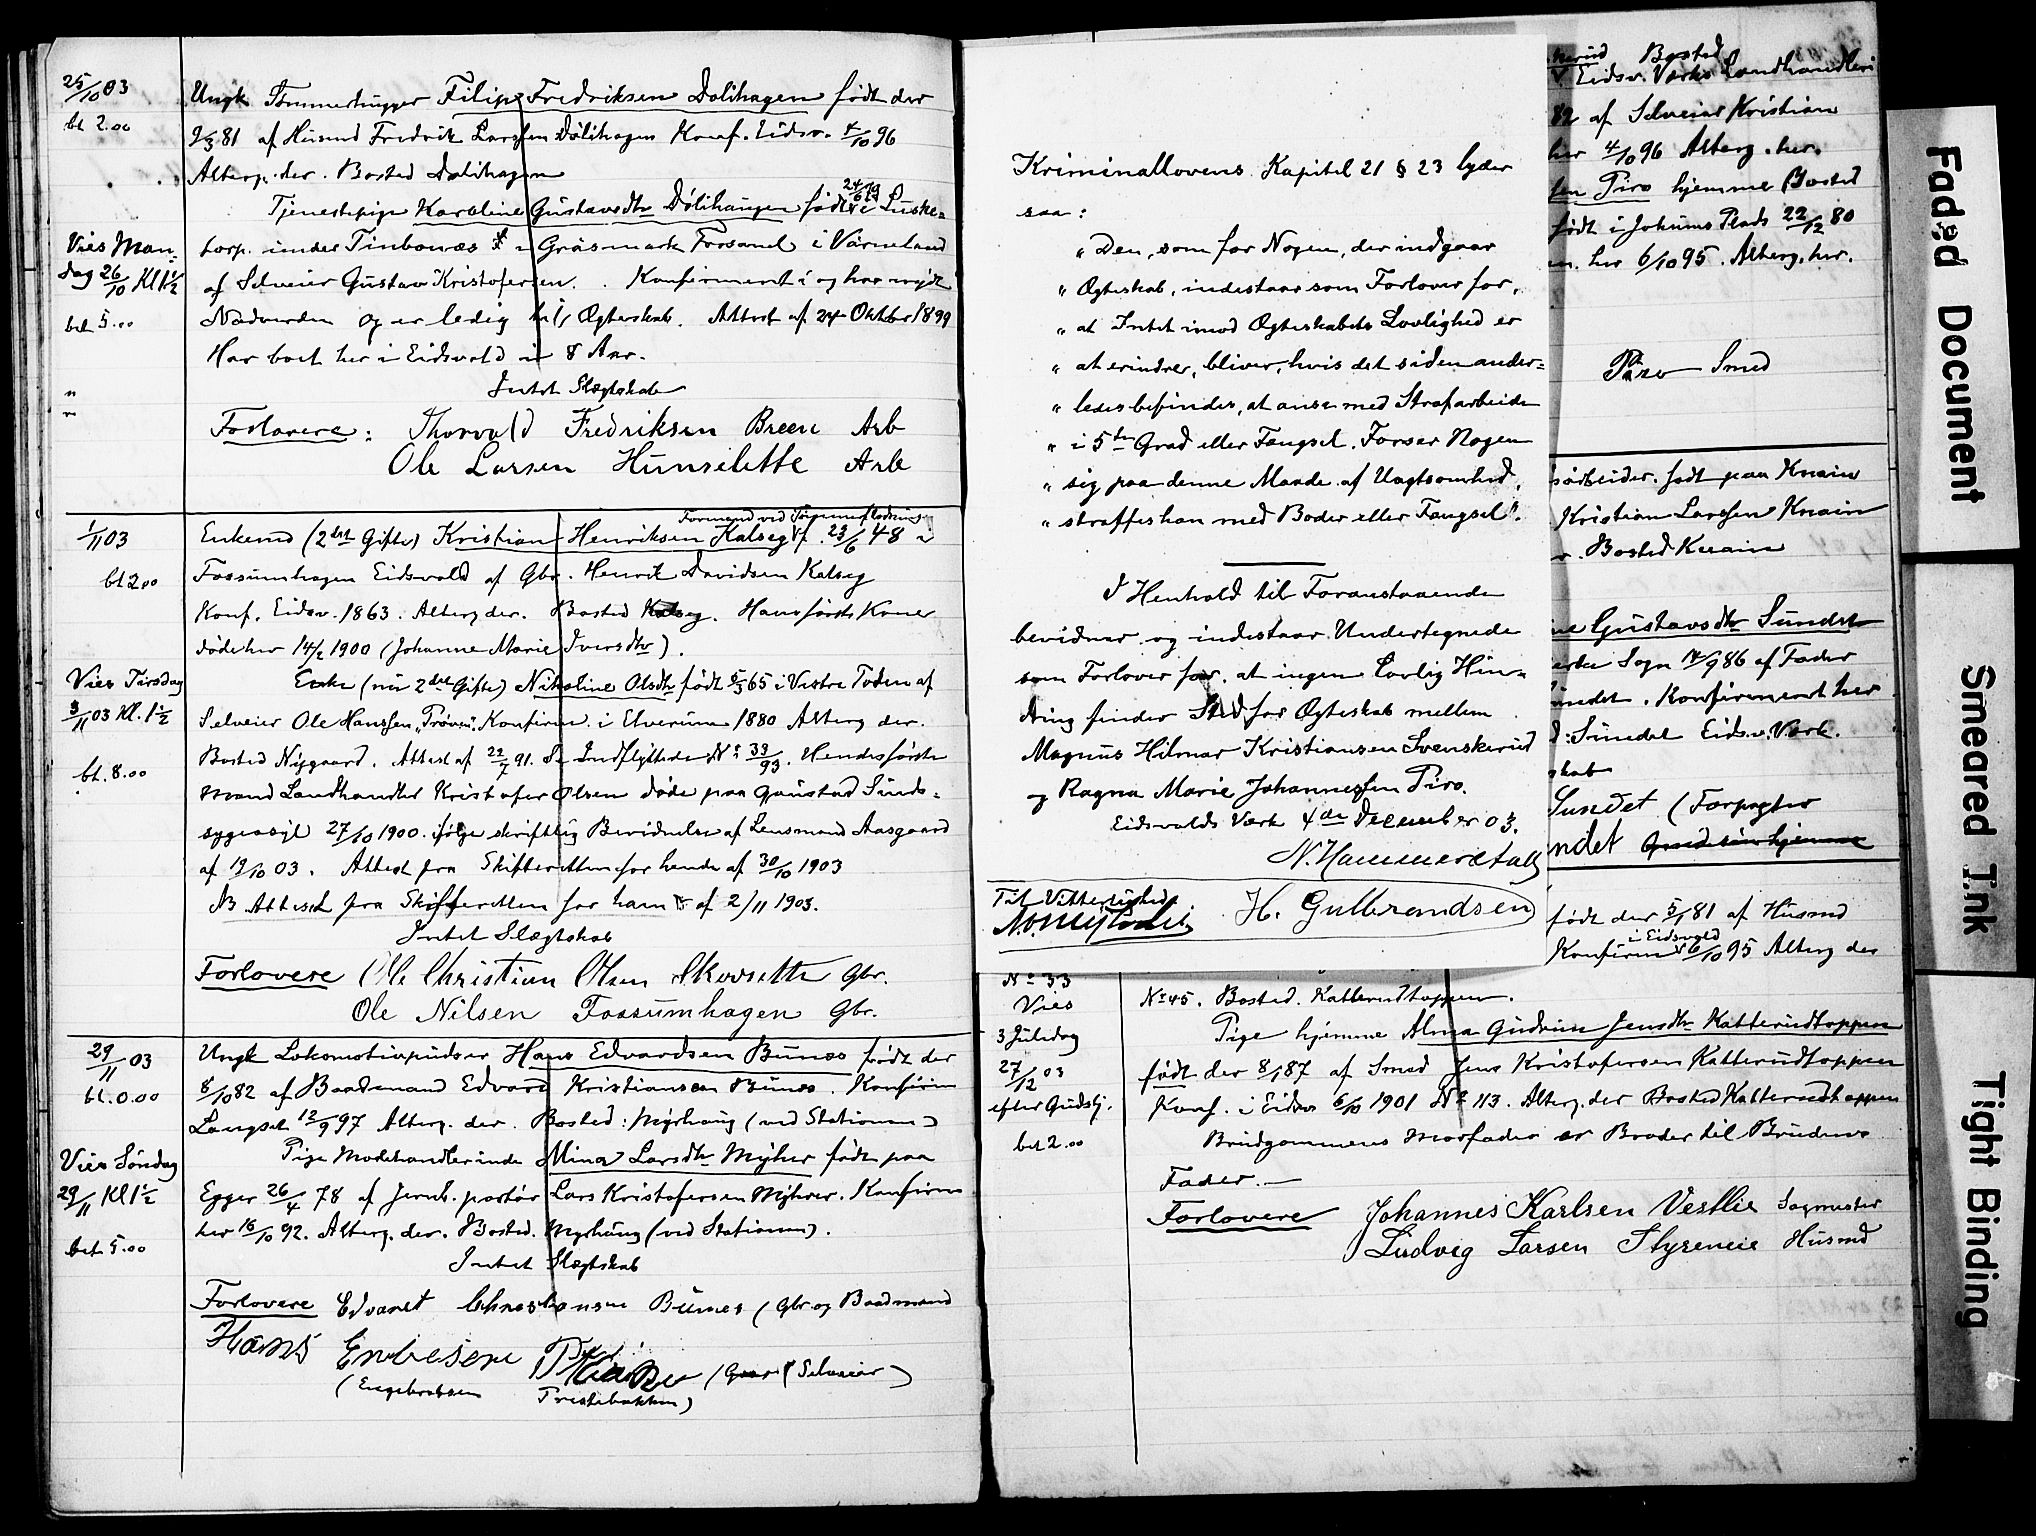 25/10 03
bt 2.00
Ungk Tømmerhugger Filip Fredriksen Dølihagen født der
9/3 81 af Husmd Fredrik Larssen Dølihagen Konf. Eidsv. 4/10 96
Alterg. der. Bosted Dølihagen
24/6 79
Tjenestepige Karoline Gustavsdtr Dølihaugen født i Luske-
torp under Timbonæs i Gräsmark Forsaml i Värmeland
Vies Man-
dag 26/10 Kl 1 1/2
bet 5.00
af Selveier Gustav Kristofersen. Konfirmert i og har nydt
Nadverden og er ledig til Ægteskab. Attest af 24 Oktbr 1899
Har boet her i Eidsvold i 8 Aar.
Intet Slægtskab
Forlovere: Thorvald Fredriksen Breen Arb
Ole Larsen Hunselette Arb
1/11 03
bt 2.00
Formand ved Tømmerflødning
Enkemd (2det Gifte) Kristian Henriksen Kalseg f. 23/6 48
Fossumhagen Eidsvold af Gbr. Henrik Davidsen Kalseg
Konf. Eidsv. 1863. Alterg der. Bosted Kalseg. Hans første Kone
døde her 14/2 1900 (Johanne Marie Iversdtr).
Vies Tirsdag
3/11 03 Kl. 1 1/2
bt. 8.00
Enke (nu 2det Gifte) Nikoline Olsdtr født 5/3 65 i Vestre Toten af
Selveier Ole Hanssen "Prøven". Konfirm. i Elverum 1880 Alterg der.
Bosted Nygaard. Attest af 22/7 91. Se Indflyttede No 33/93. Hendes første
Mand Landhandler Kristofer Olsen døde paa Gaustad Sinds-
sygeasyl 27/10 1900 ifølge skriftlig Bevidnelse af Lensmand Aasgaard
af 19/10 03. Attest fra Skifteretten for hende af 30/10 1903
NB Attest fra Skifteretten for ham af 2/11 1903.
Intet Slægtskab
Forlovere Ole Christian Olsen Skovsette Gbr.
Ole Nilsen Fossumhagen Gbr.
29/11 03
bt. 0.00
Ungk Lokomotivpudser Hans Edvardsen Bunæs født der
8/10 82 af Baadmand Edvard Kristiansen Bunæs. Konfirm
Langset 12/9 97 Alterg. der. Bosted: Myrhaug (ved Stationen)
Vies Søndag
29/11 Kl 1 1/2
bet 5.00
Pige Modehandlerinde Mina Larsdtr Myhrer født paa
Egger 26/4 78 af Jernb. portør Lars Kristofersen Myhrer. Konfirm
her 16/10 92. Alterg. der. Bosted. Myrhaug (ved Stationen).
Intet Slægtskab
Forlovere Edvardt Christiansen Bunes (Gbr og Baadmand
Hans
(Engebretsen Prestebakken)
(Selveier)
Kriminallovens Kapitel 21 § 23 lyder
saa:
"Den, som for Nogen, der indgaar
" Ægteskab, indestaar som Forlover for,
" at Intet imod Ægteskabets Lovlighed er
" at erindre, bliver, hvis det siden ander=
" ledes befindes, at anse med Strafarbeide
" i 5te Grad eller Fængsel. Forser Nogen
" sig paa denne Maade af Uagtsomhed,
" straffes han med Bøder eller Fængsel".
I Henhold til Foranstaaende
bevidner og indestaar Undertegnede
som Forlover for, at ingen Lovlig Hin-
dring finder Sted for Ægteskab mellem
Magnus Hilmar Kristiansen Svenskerud
og Ragna Marie Johannessen Piro.
Eidsvolds Værk 4de December 03.
N. Hammerstad
Til Vitterlighed
H. Gulbrandsen
kerud Bosted
V. Eidsv. Værks Landhandleri
82 af Selveier Kristian
her 4/10 96 Alterg. her.
sen Piro hjemme Bosted
født i Johnns Plads 22/12 80
her 6/10 95. Alterg. her.
Piro Smed
sarbeider. født paa Knain
Kristian Larssen Knain
Bosted Knain
ne Gustavsdtr Sundet
Sogn 14/9 86 af Fader
undet. Konfirmeret her
Sundet Eidsv. Værk.
skab
Sundet (Forpagter
ndet
født der 5/1 81 af Husmd
i Eidsvold
Konfirm 6/10 95 Alterg der
No 33
Vies
3 Juledag
27/12 03
efter Gudstj.
bet 2.00
No 45. Bosted. Katterudtoppen.
Pige hjemme Alma Gudrun Jensdtr Katterudtoppen
født der 8/1 87 af Smed Jens Kristofersen Katterudtoppen
Konf. i Eidsv 6/10 1901 No 113. Alterg. der Bosted Katterudtoppen
Brudgommens Morfader er Broder til Brudens
Fader.
Forlovere Johannes Karlsen Vestlie Sagmester
Ludvig Larsen Styreneie Husmd
Faded Document
Smeared Ink
Tight Binding